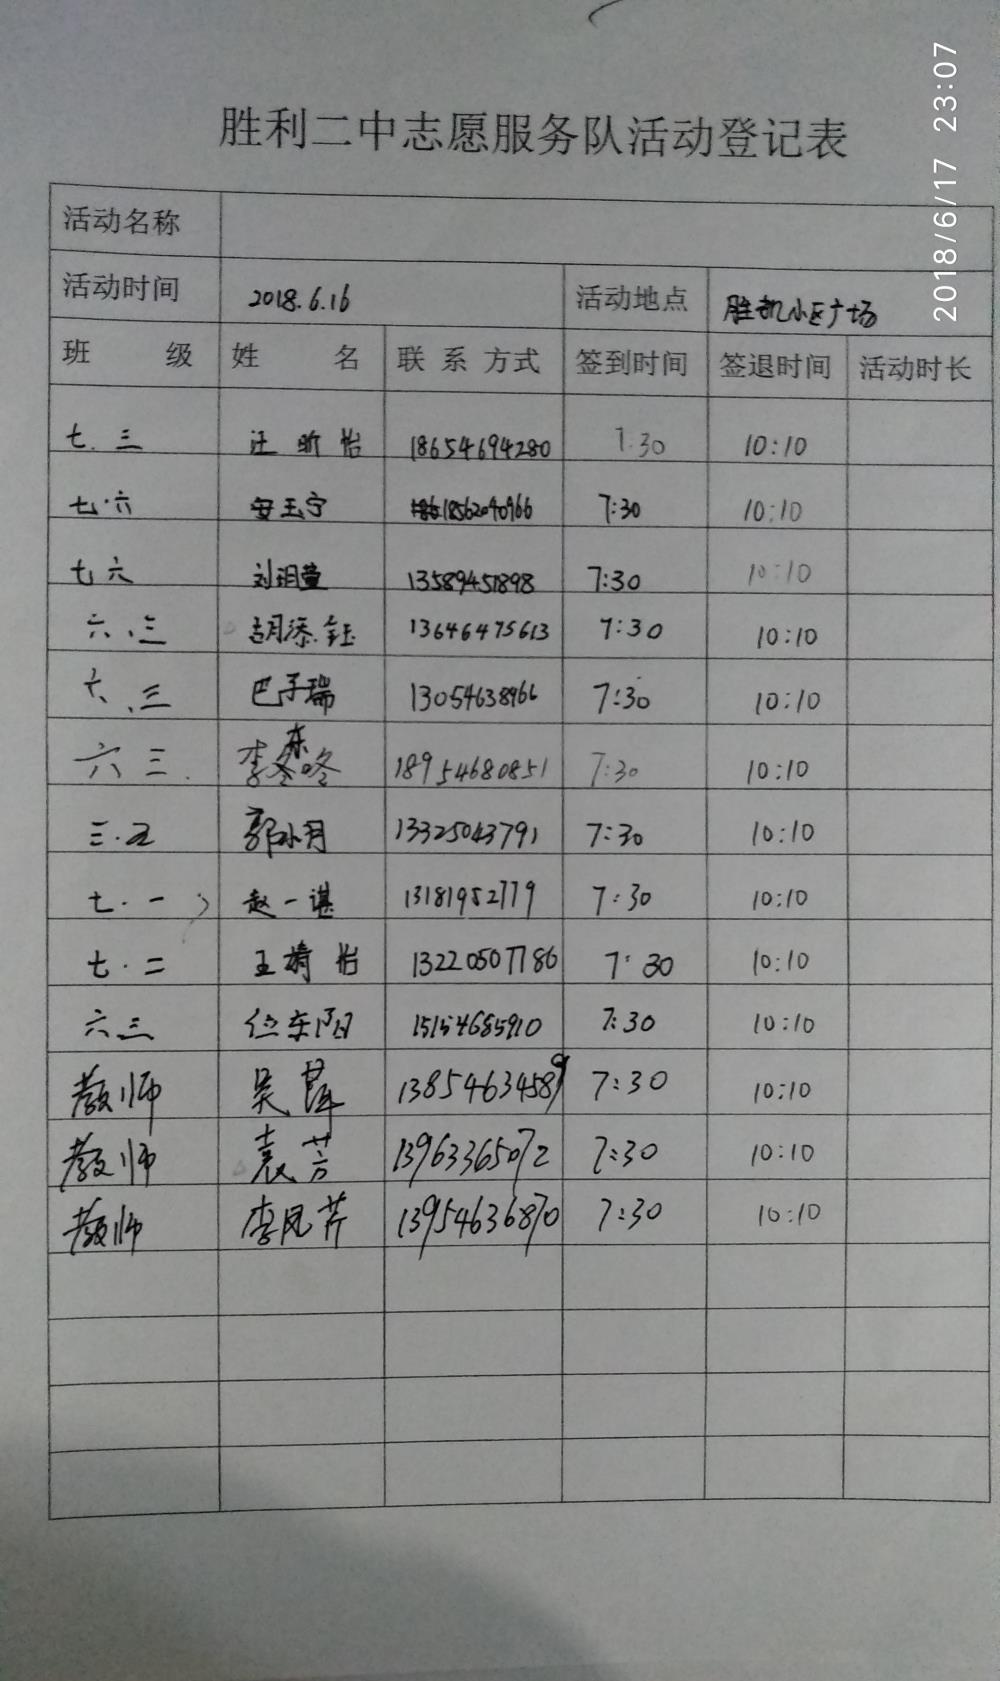 胜利二中志愿服务队活动登记表
2018/6/17 23:07
活动名称
活动时间 2018.6.16 活动地点 胜凯小区广场
班 级 姓 名 联 系 方式 签到时间 签退时间 活动时长
七.三 汪昕怡 18654694280 7:30 10:10
七.六 安玉宁 18562040966 7:30 10:10
七六 刘玥萱 13589451898 7:30 10:10
六.三 胡添钰 13646475613 7:30 10:10
六.三 巴子瑞 13054638966 7:30 10:10
六三. 李东咚 18954680851 7:30 10:10
三.五 郭小月 13325043791 7:30 10:10
七.一 赵一谌 13181952779 7:30 10:10
七.二 王婧怡 13220507786 7:30 10:10
六三 任东阳 15154685910 7:30 10:10
教师 吴萍 13854634589 7:30 10:10
教师 袁芳 13963365072 7:30 10:10
教师 李凤芹 13954636870 7:30 10:10